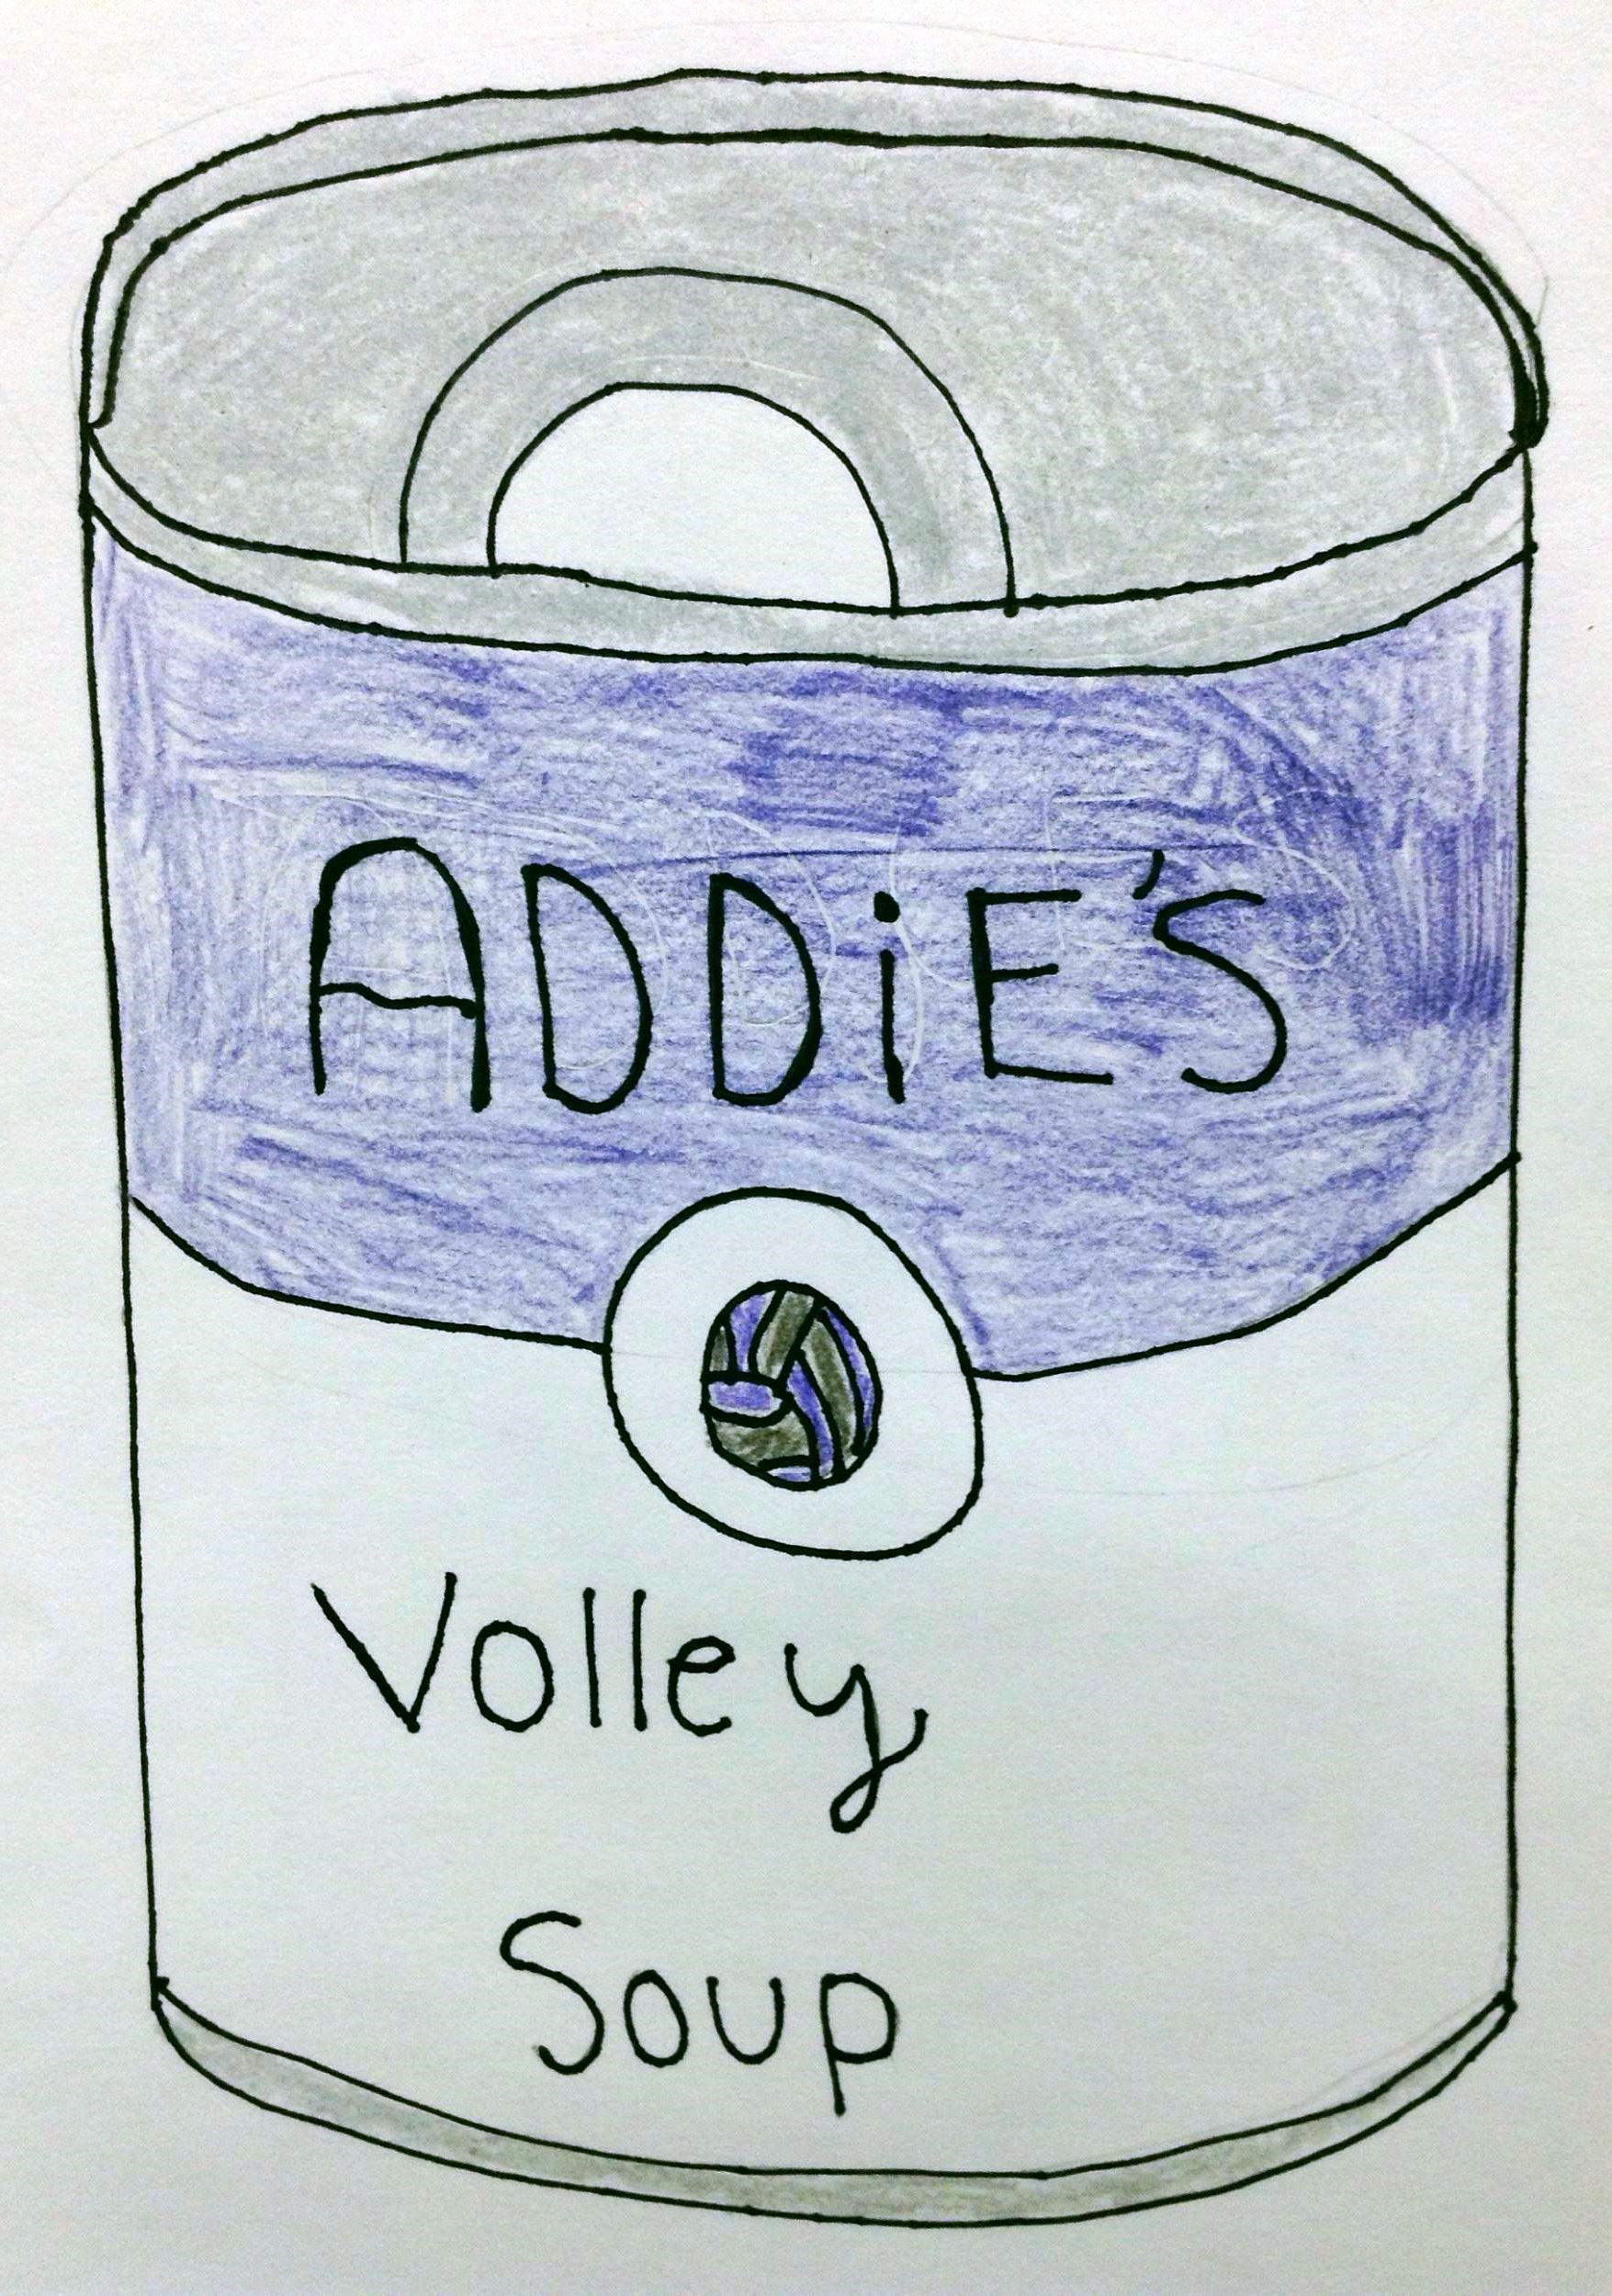 ADDiE'S
Volley
Soup